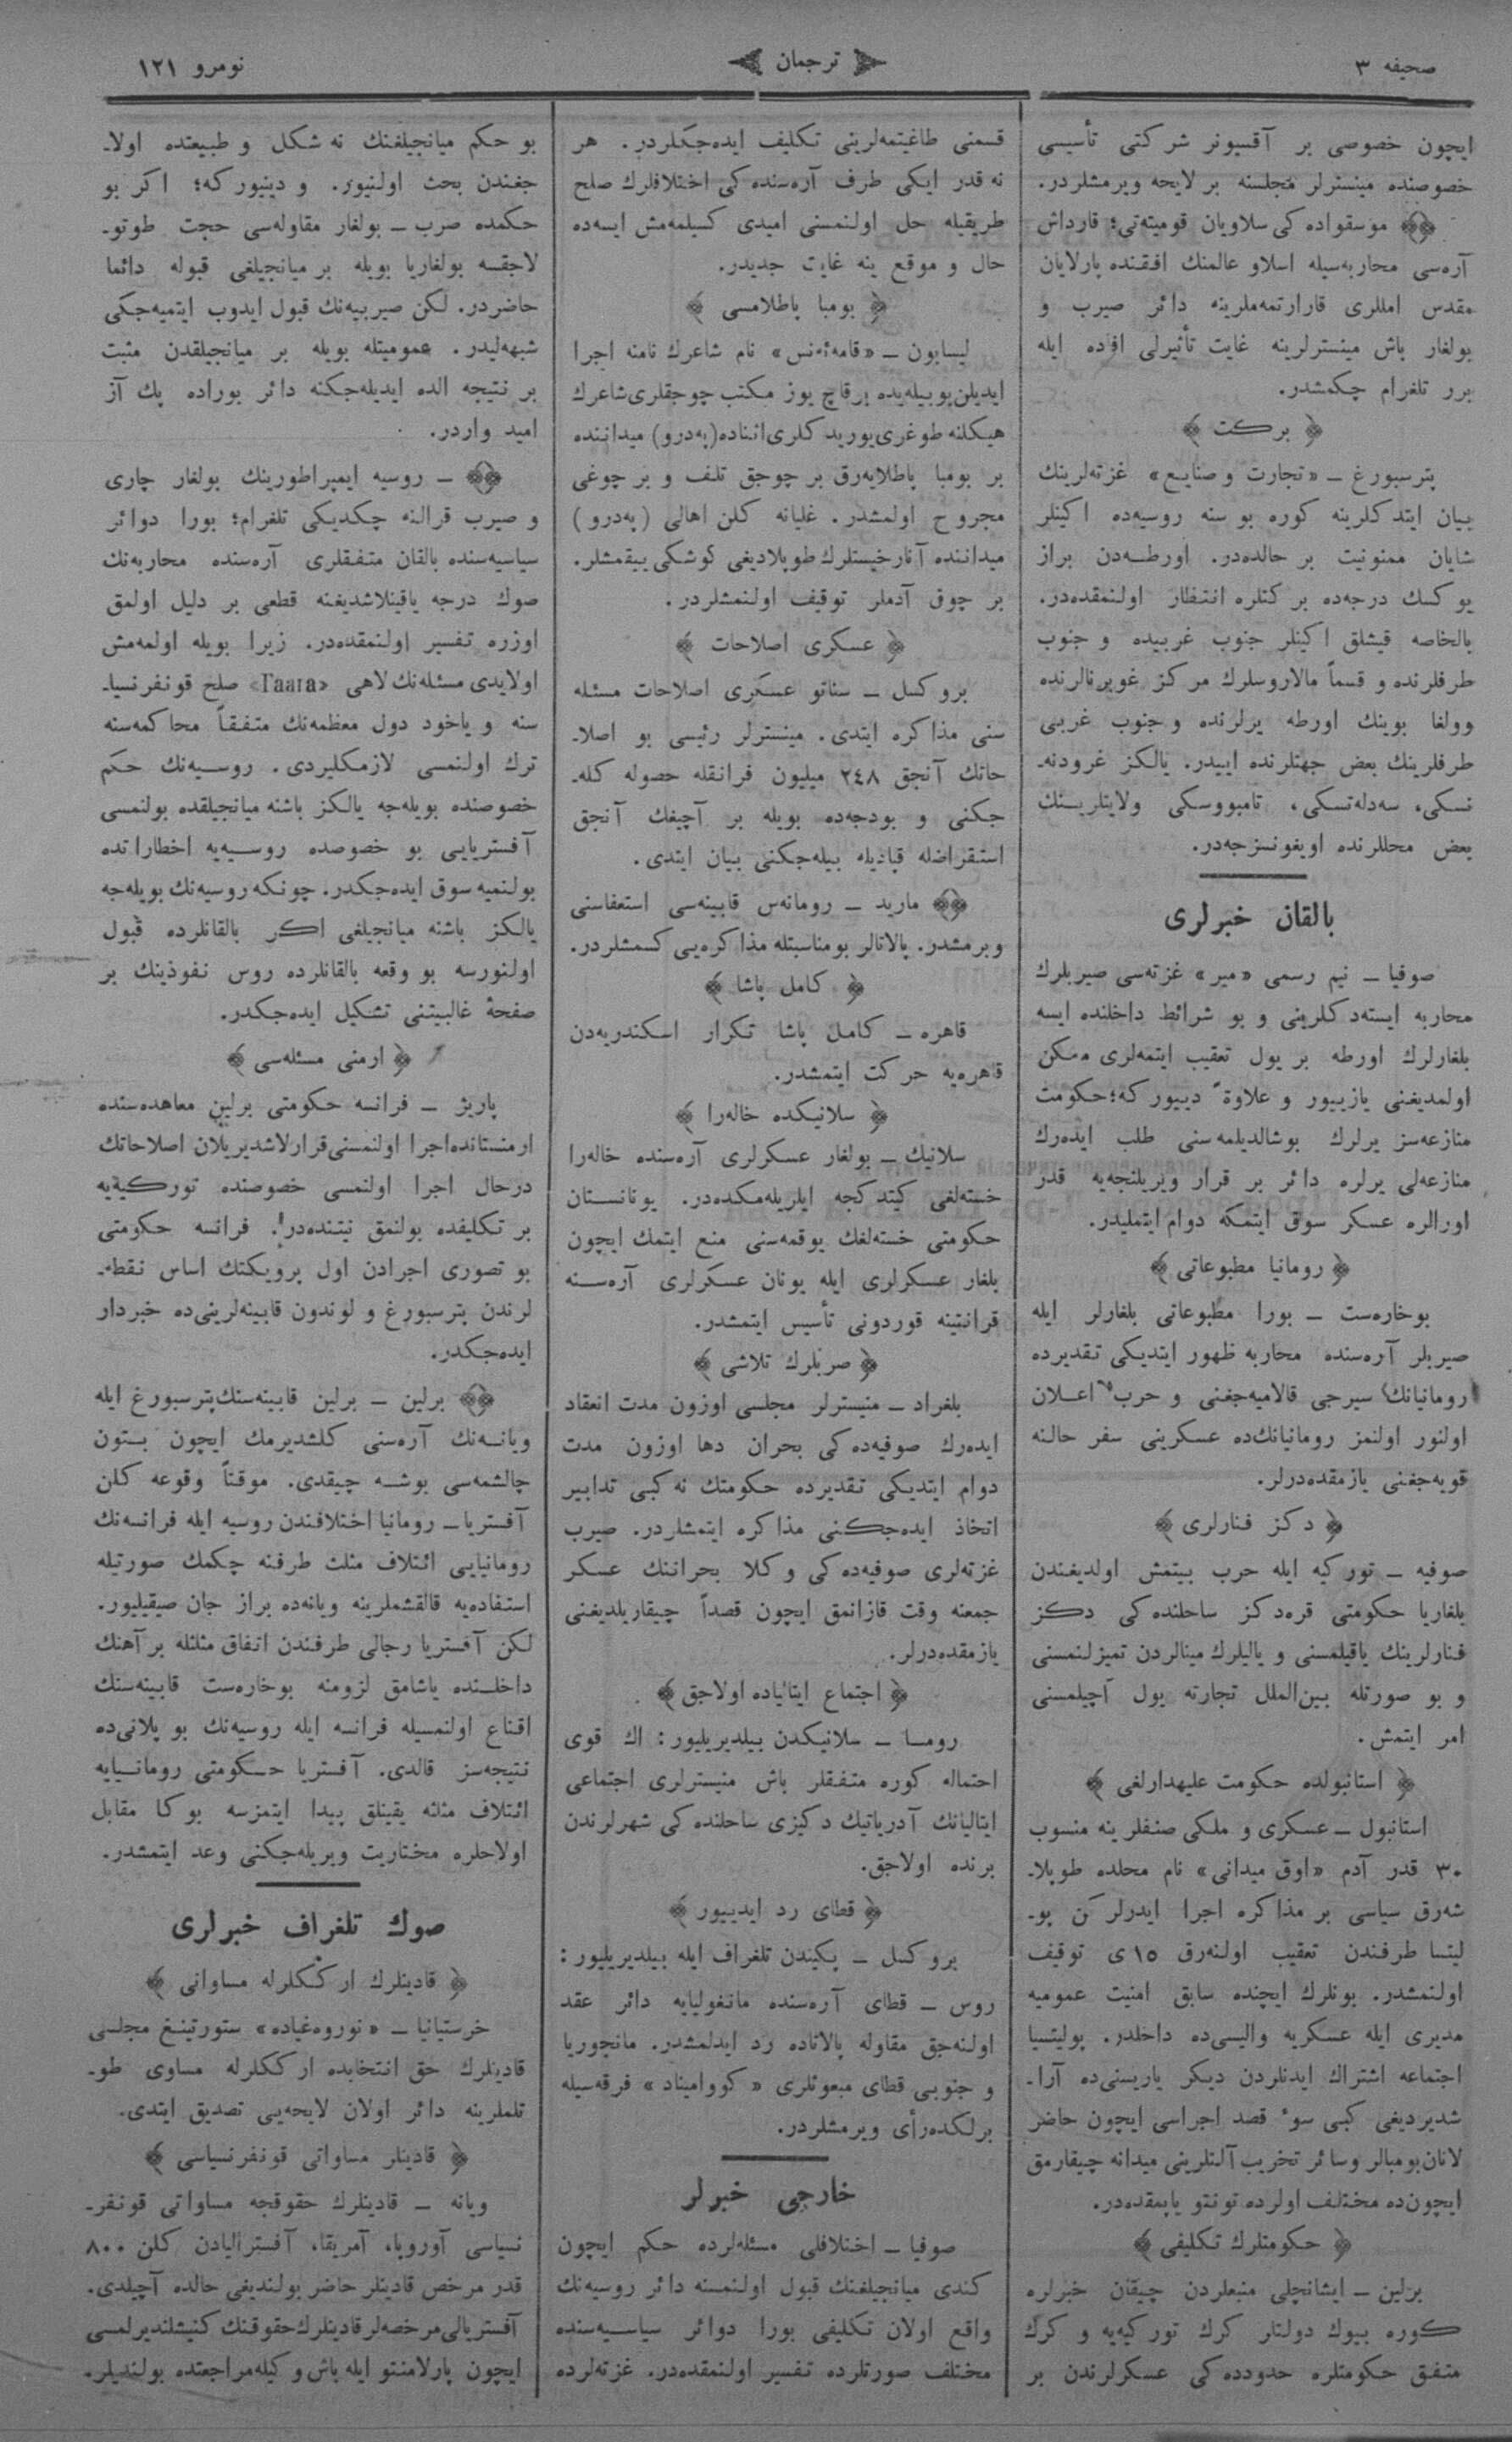 صحيفه ٣
ترجمان
نومرو ١٢١
ايچون خصوصى بر آقسيونر شركتى تأسيسى
خصوصنده مينسترلر مجلسنه بر لايحه ويرمشلردر.
موسقواده كى سلاويان قوميته‌تى؛ قارداش
آره‌سى محاربه‌سيله اسلاو عالمنك افقنده پارلايان
مقدس امللرى قارارتمه‌ملرينه دائر صيرب و
بولغار باش مينسترلرينه غايت تأثيرلى افاده ايله
برر تلغرام چكمشدر.
﴿ بركت ﴾
پترسبورغ ـ «تجارت و صنايع» غزته‌لرينك
بيان ايتدكلرينه كوره بو سنه روسيه‌ده اكينلر
شايان ممنونيت بر حالده‌در. اورطه‌دن براز
يوكسك درجه‌ده بركتلره انتظار اولنمقده‌در.
بالخاصه قيشلق اكينلر جنوب غربيده و جنوب
طرفلرنده و قسماً مالاروسلرك مركز غوبرنالرنده
وولغا بوينك اورطه يرلرنده و جنوب غربى
طرفلرينك بعض جهتلرنده اييدر. يالكز غرودنه‌ـ
نسكى، سه‌دله‌تسكى، تامبووسكى ولايتلرينك
بعض محللرنده اويغونسزجه‌در.
بالقان خبرلرى
صوفيا ـ نيم رسمى «مير» غزته‌سى صيربلرك
محاربه ايسته‌دكلرينى و بو شرائط داخلنده ايسه
بلغارلرك اورطه بر يول تعقيب ايتمه‌لرى ممكن
اولمديغنى يازييور و علاوةً دييور كه؛ حكومت
منازعه‌سز يرلرك بوشالديلمه‌سنى طلب ايده‌رك
منازعه‌لى يرلره دائر بر قرار ويريلنجه‌يه قدر
اورالره عسكر سوق ايتمكه دوام ايتمليدر.
﴿ رومانيا مطبوعاتى ﴾
بوخاره‌ست ـ بورا مطبوعاتى بلغارلر ايله
صيربلر آره‌سنده محاربه ظهور ايتديكى تقديرده
رومانيانك سيرجى قالاميه‌جغنى و حرب اعلان
اولنور اولنمز رومانيانك‌ده عسكرينى سفر حالنه
قويه‌جغنى يازمقده‌درلر.
﴿ دكز فنارلرى ﴾
صوفيه ـ توركيه ايله حرب بيتمش اولديغندن
بلغاريا حكومتى قره‌دكز ساحلنده‌كى دكز
فنارلرينك ياقيلمسنى و ياليلرك مينالردن تميزلنمسنى
و بو صورتله بين‌الملل تجارته يول آچيلمسنى
امر ايتمش.
﴿ استانبولده حكومت عليهدارلغى ﴾
استانبول ـ عسكرى و ملكى صنفلرينه منسوب
٣٠ قدر آدم «اوق ميدانى» نام محلده طوپلاـ
شه‌رق سياسى بر مذاكره اجرا ايدرلركن پوـ
ليتسا طرفندن تعقيب اولنه‌رق ١٥ى توقيف
اولنمشدر. بونلرك ايچنده سابق امنيت عموميه
مديرى ايله عسكريه واليسى‌ده داخلدر. پوليتسيا
اجتماعه اشتراك ايدنلردن ديكر ياريسنى‌ده آراـ
شديرديغى كبى سوء قصد اجراسى ايچون حاضر
لانان بومبالر و سائر تخريب آلتلرينى ميدانه چيقارمق
ايچون‌ده مختلف اولرده تونتو ياپمقده‌در.
﴿ حكومتلرك تكليفى ﴾
برلين ـ ايشانچلى منبعلردن چيقان خبرلره
كوره بيوك دولتلر كرك توركيه‌يه و كرك
متفق حكومتلره حدودده‌كى عسكرلرندن بر
قسمنى طاغيتمه‌لرينى تكليف ايده‌جكلردر. هر
نه قدر ايكى طرف آره‌سنده‌كى اختلافلرك صلح
طريقيله حل اولنمسنى اميدى كسيلمه‌مش ايسه‌ده
حال و موقع ينه غايت جديدر.
﴿ بومبا پاطلامسى ﴾
ليسابون ـ «قامه‌ئه‌نس» نام شاعرك نامنه اجرا
ايديلن يوبيله‌يده برقاچ يوز مكتب چوجقلرى شاعرك
هيكلنه طوغرى يوريدكلرى اثناده (په‌درو) ميداننده
بر بومبا پاطلايه‌رق بر چوجق تلف و بر چوغى
مجروح اولمشدر. غليانه كلن اهالى (په‌درو)
ميداننده آنارخيستلرك طوپلاديغى كوشكى ييقمشلر.
بر چوق آدملر توقيف اولنمشلردر.
﴿ عسكرى اصلاحات ﴾
بروكسل ـ سناتو عسكرى اصلاحات مسئله
سنى مذاكره ايتدى. مينسترلر رئيسى بو اصلاـ
حاتك آنجق ٢٤٨ ميليون فرانقله حصوله كله‌ـ
جكنى و بودجه‌ده بويله بر آچيغك آنجق
استقراضله قپاديله بيله‌جكنى بيان ايتدى.
ماريد ـ رومانه‌س قابينه‌سى استعفاسنى
ويرمشدر. پالاتالر بو مناسبتله مذاكره‌يى كسمشلردر.
﴿ كامل پاشا ﴾
قاهره ـ كامل پاشا تكرار اسكندريه‌دن
قاهره‌يه حركت ايتمشدر.
﴿ سلانيكده خاله‌را ﴾
سلانيك ـ بولغار عسكرلرى آره‌سنده خاله‌را
خسته‌لغى كيتدكجه ايلريله‌مكده‌در. يونانستان
حكومتى خسته‌لغك يوقمه‌سنى منع ايتمك ايچون
بلغار عسكرلرى ايله يونان عسكرلرى آره‌سنه
قرانتينه قوردونى تأسيس ايتمشدر.
﴿ صربلرك تلاشى ﴾
بلغراد ـ منيسترلر مجلسى اوزون مدت انعقاد
ايده‌رك صوفيه‌ده‌كى بحران دها اوزون مدت
دوام ايتديكى تقديرده حكومتك نه كبى تدابير
اتخاذ ايده‌جكنى مذاكره ايتمشلردر. صيرب
غزته‌لرى صوفيه‌ده‌كى وكلا بحراننك عسكر
جمعنه وقت قازانمق ايچون قصداً چيقاريلديغنى
يازمقده‌درلر.
﴿ اجتماع ايتالياده اولاجق ﴾
روما ـ سلانيكدن بيلديريليور: اك قوى
احتماله كوره متفقلر باش منيسترلرى اجتماعى
ايتاليانك آدرياتيك دكيزى ساحلنده‌كى شهرلرندن
برنده اولاجق.
﴿ قطاى رد ايدييور ﴾
بروكسل ـ پكيندن تلغراف ايله بيلديريليور:
روس ـ قطاى آره‌سنده مانغوليايه دائر عقد
اولنه‌جق مقاوله پالاتاده رد ايدلمشدر. مانچوريا
و جنوبى قطاى مبعوثلرى «كوواميناد» فرقه‌سيله
برلكده رأى ويرمشلردر.
خارجى خبرلر
صوفيا ـ اختلافلى مسئله‌لرده حكم ايچون
كندى ميانجيلغنك قبول اولنمسنه دائر روسيه‌نك
واقع اولان تكليفى بورا دوائر سياسيه‌سنده
مختلف صورتلرده تفسير اولنمقده‌در. غزته‌لرده
بو حكم ميانجيلغنك نه شكل و طبيعتده اولاـ
جغندن بحث اولنيور. و دينيور كه؛ اكر بو
حكمده صرب ـ بولغار مقاوله‌سى حجت طوتوـ
لاجقسه بولغاريا بويله بر ميانجيلغى قبوله دائما
حاضردر. لكن صيربيه‌نك قبول ايدوب ايتميه‌جكى
شبهه‌ليدر. عموميتله بويله بر ميانجيلقدن مثبت
بر نتيجه الده ايديله‌جكنه دائر بوراده پك آز
اميد واردر.
ـ روسيه ايمپراطورينك بولغار چارى
و صيرب قرالنه چكديكى تلغرام؛ بورا دوائر
سياسيه‌سنده بالقان متفقلرى آره‌سنده محاربه‌نك
صوك درجه ياقينلاشديغنه قطعى بر دليل اولمق
اوزره تفسير اولنمقده‌در. زيرا بويله اولمه‌مش
اولايدى مسئله‌نك لاهى «Гаага» صلح قونفرنسياـ
سنه و ياخود دول معظمه‌نك متفقاً محاكمه‌سنه
ترك اولنمسى لازمكليردى. روسيه‌نك حكم
خصوصنده بويله‌جه يالكز باشنه ميانجيلقده بولنمسى
آفستريايى بو خصوصده روسيه‌يه اخطاراتده
بولنميه سوق ايده‌جكدر. چونكه روسيه‌نك بويله‌جه
يالكز باشنه ميانجيلغى اكر بالقانلرده قبول
اولنورسه بو وقعه بالقانلرده روس نفوذينك بر
صفحهٔ غالبيتنى تشكيل ايده‌جكدر.
﴿ ارمنى مسئله‌سى ﴾
پاريژ ـ فرانسه حكومتى برلين معاهده‌سنده
ارمنستانده اجرا اولنمسنى قرارلاشديريلان اصلاحاتك
درحال اجرا اولنمسى خصوصنده توركيه‌يه
بر تكليفده بولنمق نيتنده‌در. فرانسه حكومتى
بو تصورى اجرادن اول پرويكتك اساس نقطه‌ـ
لرندن پترسبورغ و لوندون قابينه‌لرينى‌ده خبردار
ايده‌جكدر.
برلين ـ برلين قابينه‌سنك پترسبورغ ايله
ويانه‌نك آره‌سنى كلشديرمك ايچون بتون
چالشمه‌سى بوشه چيقدى. موقتاً وقوعه كلن
آفستريا ـ رومانيا اختلافندن روسيه ايله فرانسه‌نك
رومانيايى ائتلاف مثلث طرفنه چكمك صورتيله
استفاده‌يه قالقشملرينه ويانه‌ده براز جان صيقيليور.
لكن آفستريا رجالى طرفندن اتفاق مثلثله بر آهنك
داخلنده ياشامق لزومنه بوخاره‌ست قابينه‌سنك
اقناع اولنمسيله فرانسه ايله روسيه‌نك بو پلانى‌ده
نتيجه‌سز قالدى. آفستريا حكومتى رومانيايه
ائتلاف مثلثه يقينلق پيدا ايتمزسه بوكا مقابل
اولاحلره مختاريت ويريله‌جكنى وعد ايتمشدر.
صوك تلغراف خبرلرى
﴿ قادينلرك اركـكلرله مساواتى ﴾
خرستيانيا ـ «نوروه‌غياده» ستورتينغ مجلسى
قادينلرك حق انتخابده اركـكلرله مساوى طوـ
تلملرينه دائر اولان لايحه‌يى تصديق ايتدى.
﴿ قادينلر مساواتى قونفرنسياسى ﴾
ويانه ـ قادينلرك حقوقجه مساواتى قونفرـ
نسياسى آوروپا، آمريقا، آفستراليادن كلن ٨٠٠
قدر مرخص قادينلر حاضر بولنديغى حالده آچيلدى.
آفسترالى مرخصه‌لر قادينلرك حقوقنك كنيشلنديرلمسى
ايچون پارلامنتو ايله باش وكيله مراجعتده بولنديلر.